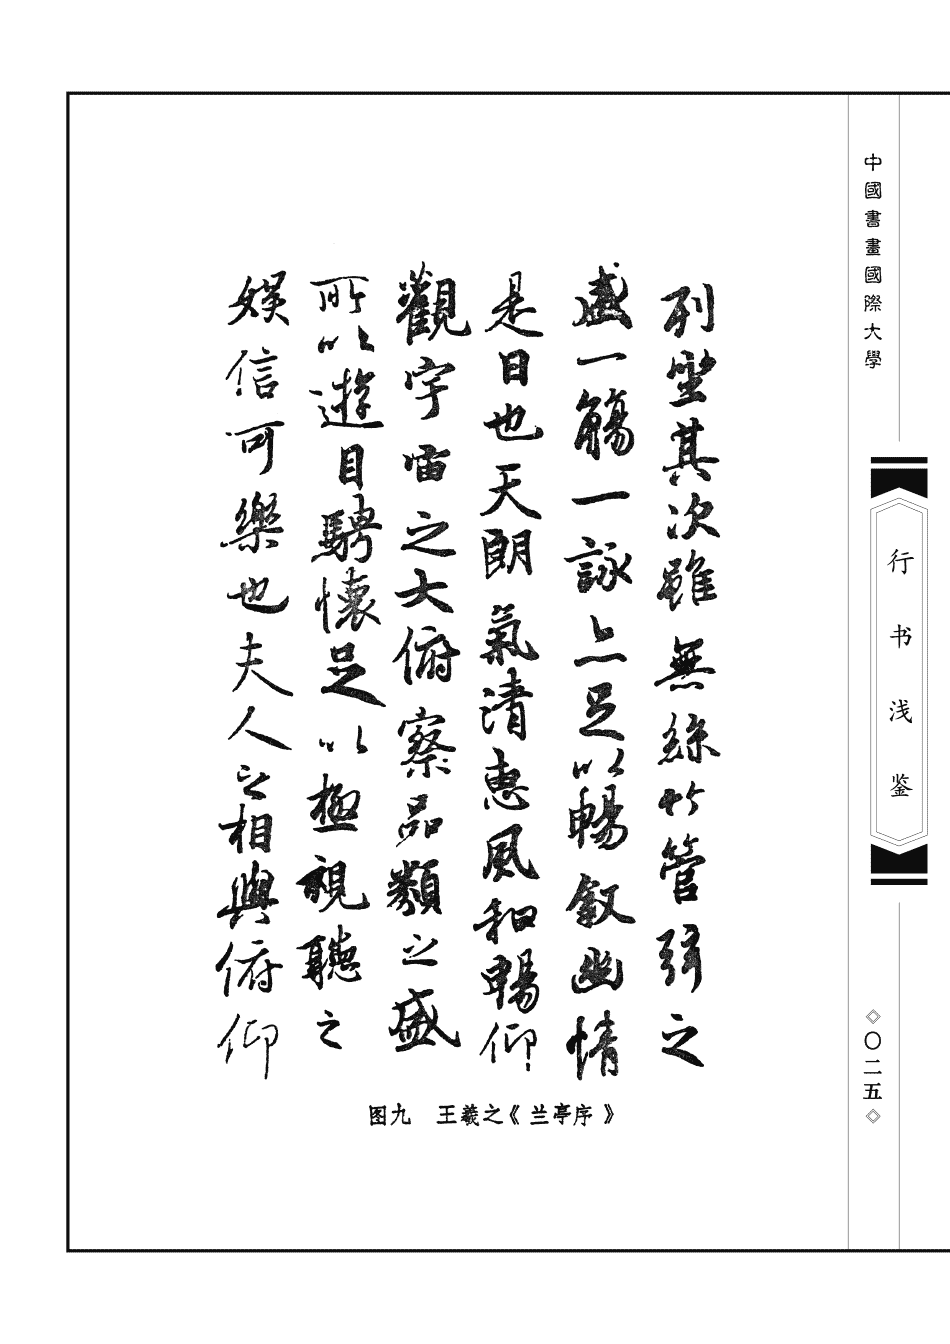 列坐其次雖無絲竹管弦之
盛一觴一詠亦足以暢敘幽情
是日也天朗氣清惠風和暢仰
觀宇宙之大俯察品類之盛
所以遊目騁懷足以極視聽之
娛信可樂也夫人之相與俯仰
图九　王羲之《兰亭序》
中國書畫國際大學
行书浅鉴
◇〇二五◇